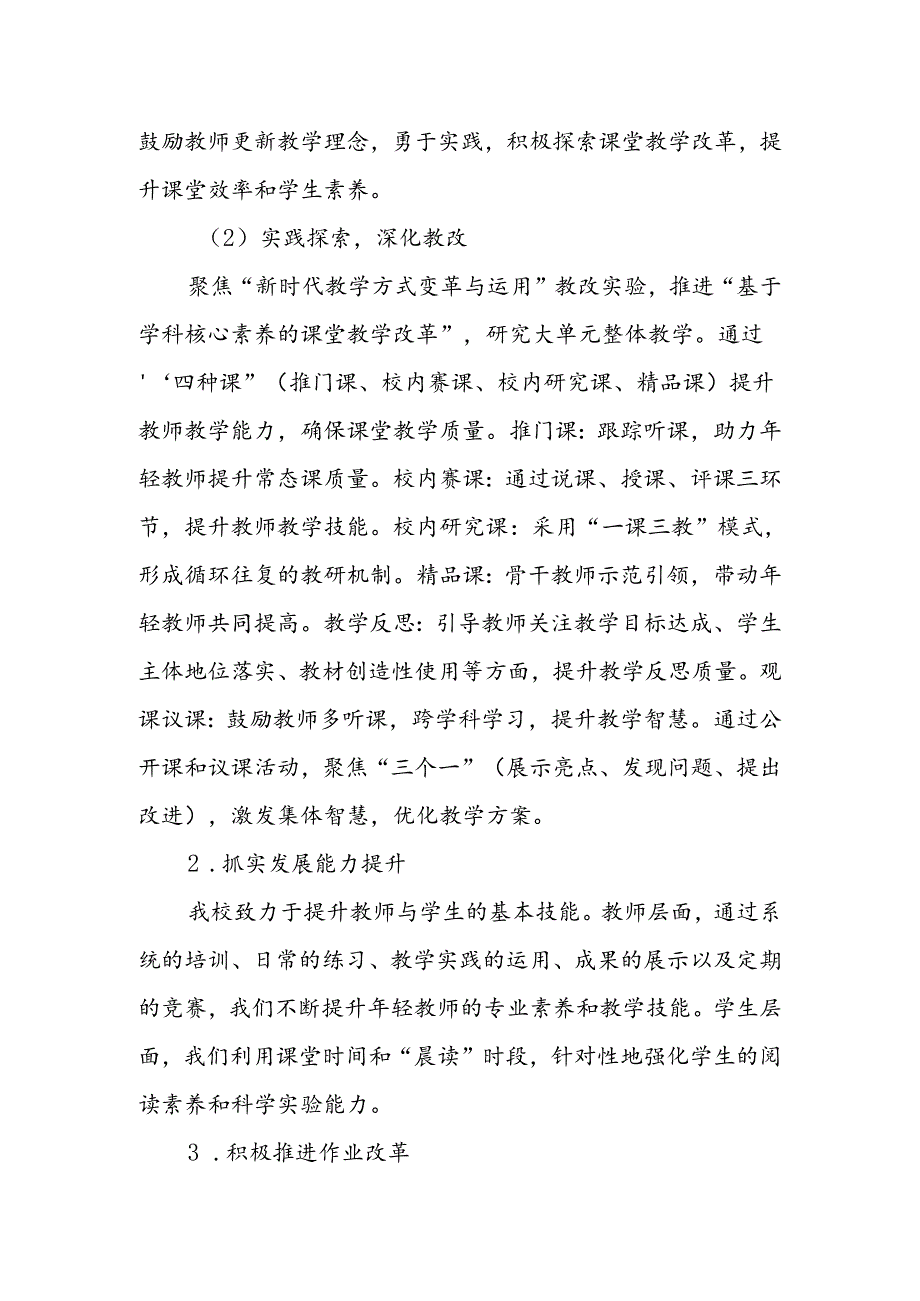 鼓励教师更新教学理念，勇于实践，积极探索课堂教学改革，提
升课堂效率和学生素养。
（2）实践探索，深化教改
聚焦“新时代教学方式变革与运用”教改实验，推进“基于
学科核心素养的课堂教学改革”，研究大单元整体教学。通过
'‘四种课”（推门课、校内赛课、校内研究课、精品课）提升
教师教学能力，确保课堂教学质量。推门课：跟踪听课，助力年
轻教师提升常态课质量。校内赛课：通过说课、授课、评课三环
节，提升教师教学技能。校内研究课：采用“一课三教”模式，
形成循环往复的教研机制。精品课：骨干教师示范引领，带动年
轻教师共同提高。教学反思：引导教师关注教学目标达成、学生
主体地位落实、教材创造性使用等方面，提升教学反思质量。观
课议课：鼓励教师多听课，跨学科学习，提升教学智慧。通过公
开课和议课活动，聚焦“三个一”（展示亮点、发现问题、提出
改进），激发集体智慧，优化教学方案。
2.抓实发展能力提升
我校致力于提升教师与学生的基本技能。教师层面，通过系
统的培训、日常的练习、教学实践的运用、成果的展示以及定期
的竞赛，我们不断提升年轻教师的专业素养和教学技能。学生层
面，我们利用课堂时间和“晨读”时段，针对性地强化学生的阅
读素养和科学实验能力。
3.积极推进作业改革